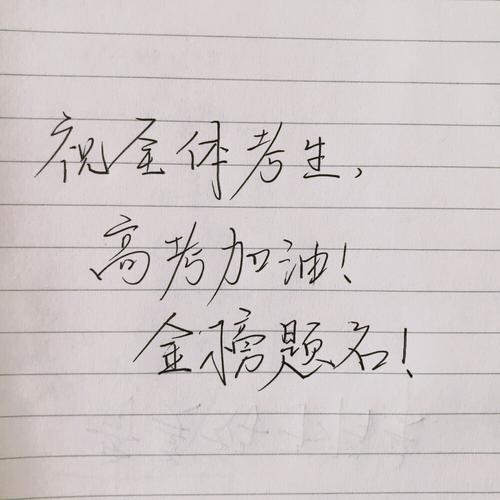 祝全体考生，
高考加油！
金榜题名！